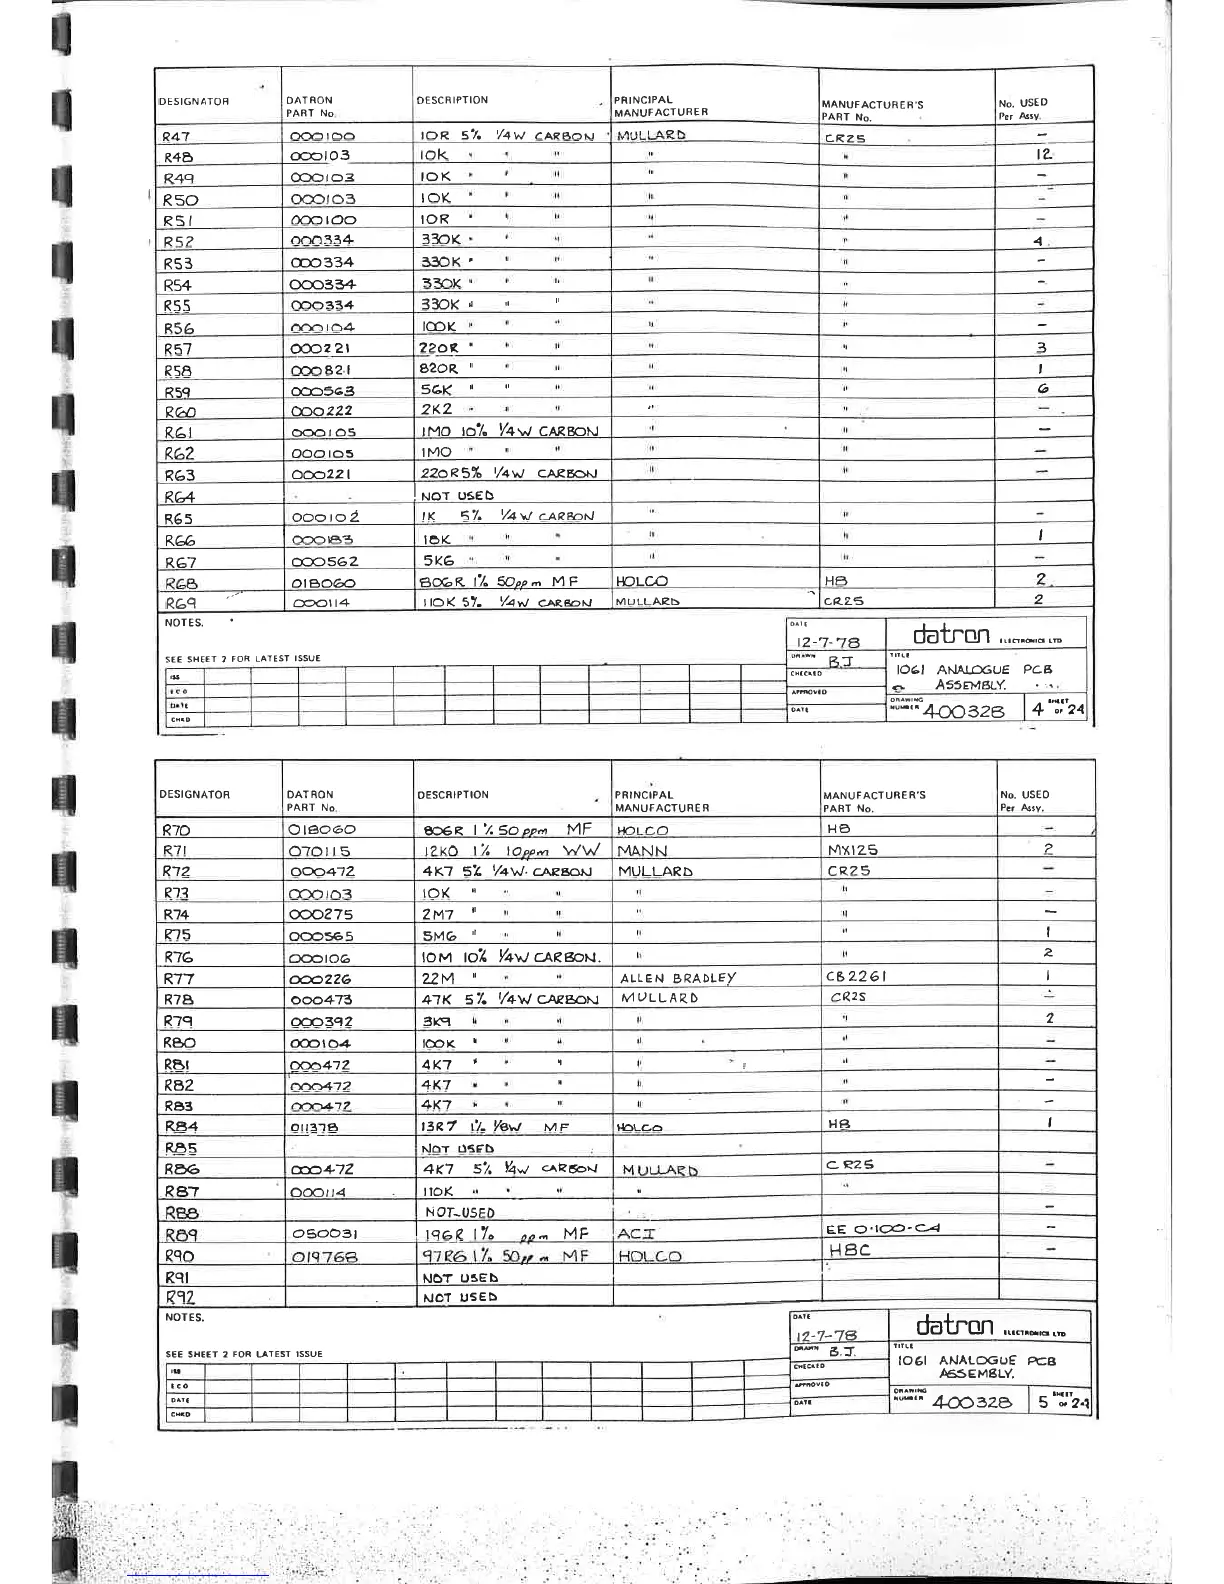 DESIGNATOR DATRON PART No. DESCRIPTION PRINCIPAL MANUFACTURER MANUFACTURER'S PART No. No. USED Per Assy.
R47 000100 10R 5% 1/4W CARBON MULLARD CR25 –
R48 000103 10K " " " " " 12
R49 000103 10K " " " " " –
R50 000103 10K " " " " " –
R51 000100 10R " " " " " –
R52 000334 330K " " " " " 4
R53 000334 330K " " " " " –
R54 000334 330K " " " " " –
R55 000334 330K " " " " " –
R56 000104 100K " " " " " –
R57 000221 220R " " " " " 3
R58 000821 820R " " " " " 1
R59 000563 56K " " " " " 6
R60 000222 2K2 " " " " " –
R61 000105 1M0 10% 1/4W CARBON " " –
R62 000105 1M0 " " " " " –
R63 000221 220R 5% 1/4W CARBON " " –
R64 NOT USED
R65 000102 1K 5% 1/4W CARBON " " –
R66 000183 18K " " " " " 1
R67 000562 5K6 " " " " " –
R68 018060 806R 1% 50ppm MF HOLCO H8 2
R69 000114 110K 5% 1/4W CARBON MULLARD CR25 2
NOTES.
SEE SHEET 2 FOR LATEST ISSUE
ISS
ECO
DATE
CHKD
DATE 12-7-78
DRAWN B.J
CHECKED
APPROVED
DATE
datron ELECTRONICS LTD
TITLE
1061 ANALOGUE PCB
ASSEMBLY.
DRAWING NUMBER 400328 SHEET 4 OF 24
DESIGNATOR DATRON PART No. DESCRIPTION PRINCIPAL MANUFACTURER MANUFACTURER'S PART No. No. USED Per Assy.
R70 018060 806R 1% 50ppm MF HOLCO H8 –
R71 070115 12K0 1% 10ppm WW MANN MX125 2
R72 000472 4K7 5% 1/4W. CARBON MULLARD CR25 –
R73 000103 10K " " " " " –
R74 000275 2M7 " " " " " –
R75 000565 5M6 " " " " " 1
R76 000106 10M 10% 1/4W CARBON. " " 2
R77 000226 22M " " " ALLEN BRADLEY CB2261 1
R78 000473 47K 5% 1/4W CARBON MULLARD CR25 –
R79 000392 3K9 " " " " " 2
R80 000104 100K " " " " " –
R81 000472 4K7 " " " " " –
R82 000472 4K7 " " " " " –
R83 000472 4K7 " " " " " –
R84 011378 13R7 1% 1/8W MF HOLCO H8 1
R85 NOT USED
R86 000472 4K7 5% 1/4W CARBON MULLARD CR25 –
R87 000114 110K " " " " " –
R88 NOT USED
R89 050031 196R 1% ppm MF ACI EE 0·100-C4 –
R90 019768 97R6 1% 50ppm MF HOLCO H8C –
R91 NOT USED
R92 NOT USED
NOTES.
SEE SHEET 2 FOR LATEST ISSUE
ISS
ECO
DATE
CHKD
DATE 12-7-78
DRAWN B.J.
CHECKED
APPROVED
DATE
datron ELECTRONICS LTD
TITLE
1061 ANALOGUE PCB
ASSEMBLY.
DRAWING NUMBER 400328 SHEET 5 OF 24